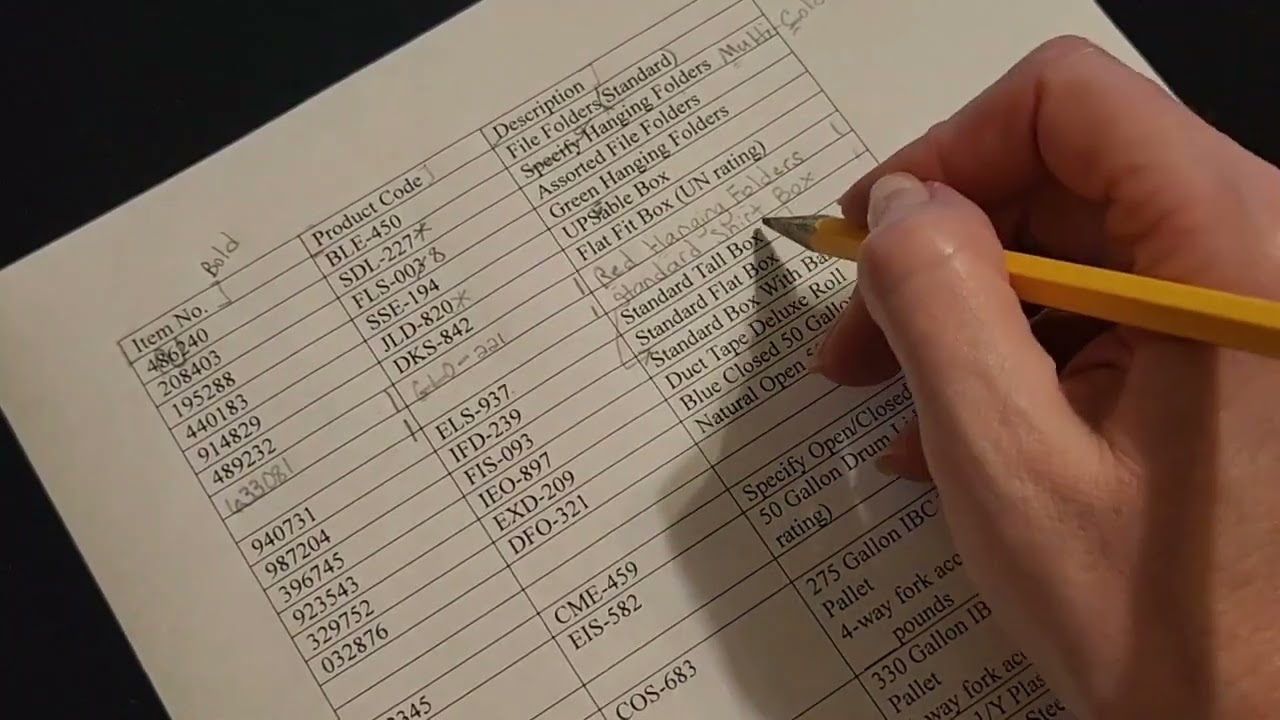 Bold
Item No. Product Code Description
486240 BLE-450 File Folders (Standard)
208403 SDL-227* Specify Hanging Folders Multi-Colo
195288 FLS-0038 Assorted File Folders
440183 SSE-194 Green Hanging Folders
914829 JLD-820* UPSable Box
489232 DKS-842 Flat Fit Box (UN rating)
1a33081 GLO-221 Red Hanging Folders
Standard Shirt Box
940731 ELS-937 Standard Tall Box
987204 IFD-239 Standard Flat Box
396745 FIS-093 Standard Box With
923543 IEO-897 Duct Tape Deluxe Roll
329752 EXD-209 Blue Closed 50
032876 DFO-321 Natural Open
Specify Open/Closed
CME-459 50 Gallon Drum
rating)
EIS-582 275 Gallon IBC
Pallet
4-way fork
pounds
345 COS-683 330 Gallon
Pallet
way fork